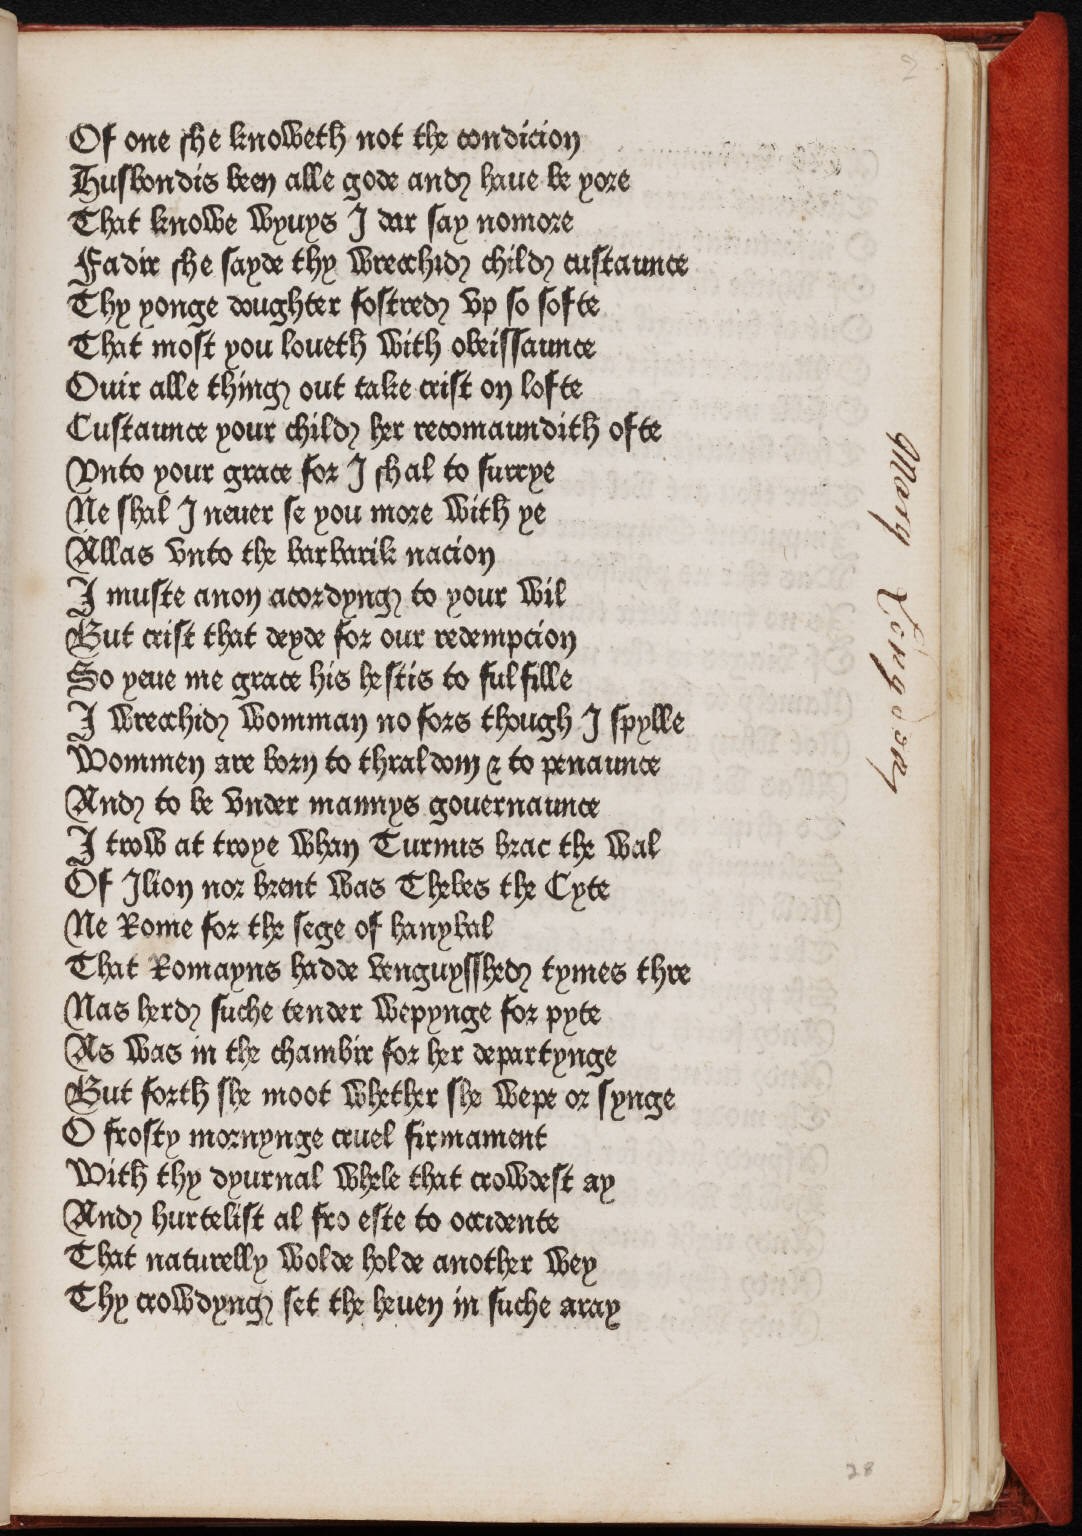 2
Of one she knoweth not the condicion
Husbondis been alle gode and haue be yore
That knowe wyuys I dar say nomore
Fadir she sayde thy wrecchid child custaunce
Thy yonge doughter fostred vp so softe
That most you loueth with obeissaunce
Ouir alle thing out take crist on lofte
Custaunce your child her recomaundith ofte
Vnto your grace for I shal to surrye
Ne shal I neuer se you more with ye
Allas vnto the barbarik nacion
I muste anon acordyng to your wil
But crist that deyde for our redempcion
So yeue me grace his hestis to fulfille
I wrecchid womman no fors though I spylle
Wommen are born to thraldom & to penaunce
And to be vnder mannys gouernaunce
I trow at troye whan Turmus brac the wal
Of Ilion nor brent was Thebes the Cyte
Ne Rome for the sege of hanybal
That Romayns hadde venguysshed tymes thre
Nas herd suche tender wepynge for pyte
As was in the chambir for her departynge
But forth she moot whether she wepe or synge
O frosty mornynge cruel firmament
With thy dyurnal whele that crowdest ay
And hurtelist al fro este to occidente
That naturelly wolde holde another wey
Thy crowdyng set the heuen in suche aray
Mary
28